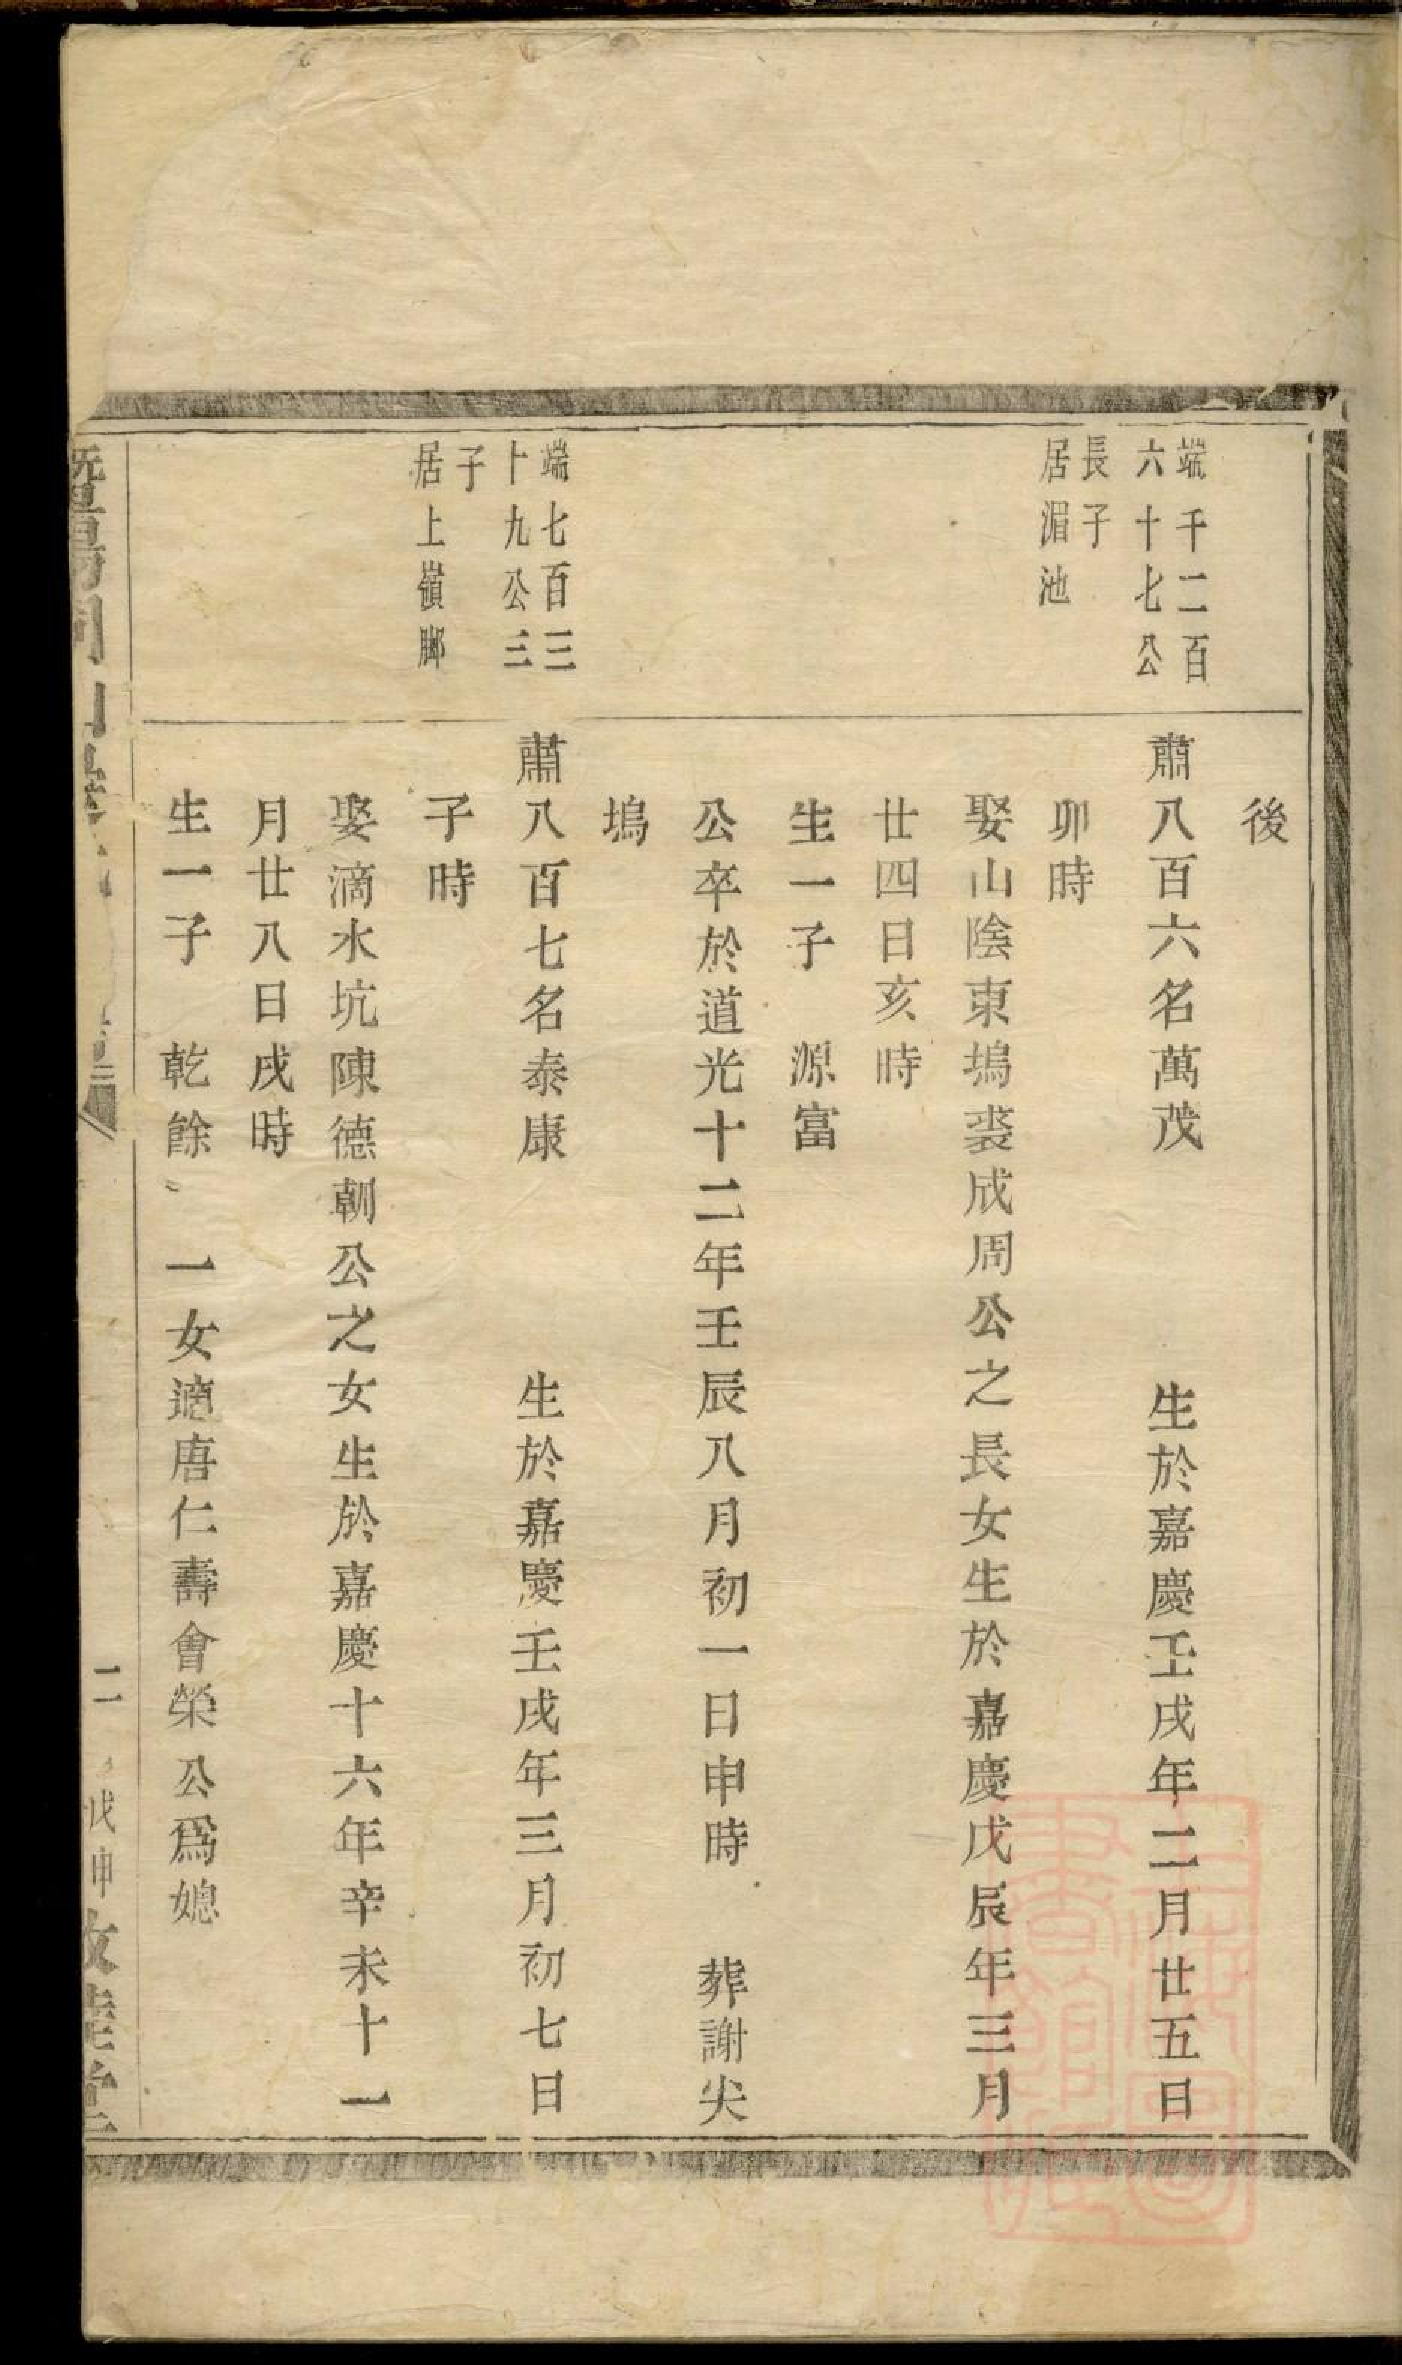 後
端千二百
六十七公
長子
居湄池
蕭八百六名萬茂 生於嘉慶壬戌年二月廿五日
卯時
娶山陰東塢裘成周公之長女生於嘉慶戊辰年三月
廿四日亥時
生一子 源富
公卒於道光十二年壬辰八月初一日申時 葬謝尖
塢
端七百三
十九公三
子
居上嶺脚
蕭八百七名泰康 生於嘉慶壬戌年三月初七日
子時
娶滴水坑陳德朝公之女生於嘉慶十六年辛未十一
月廿八日戌時
生一子 乾餘 一女適唐仁壽會榮公爲媳
二 戊申